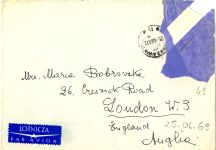 Mrs. Maria Bobrovska
26, Creswick Road
London W.3
England
Anglia
25.04.69
LOTNICZA
PAR AVION